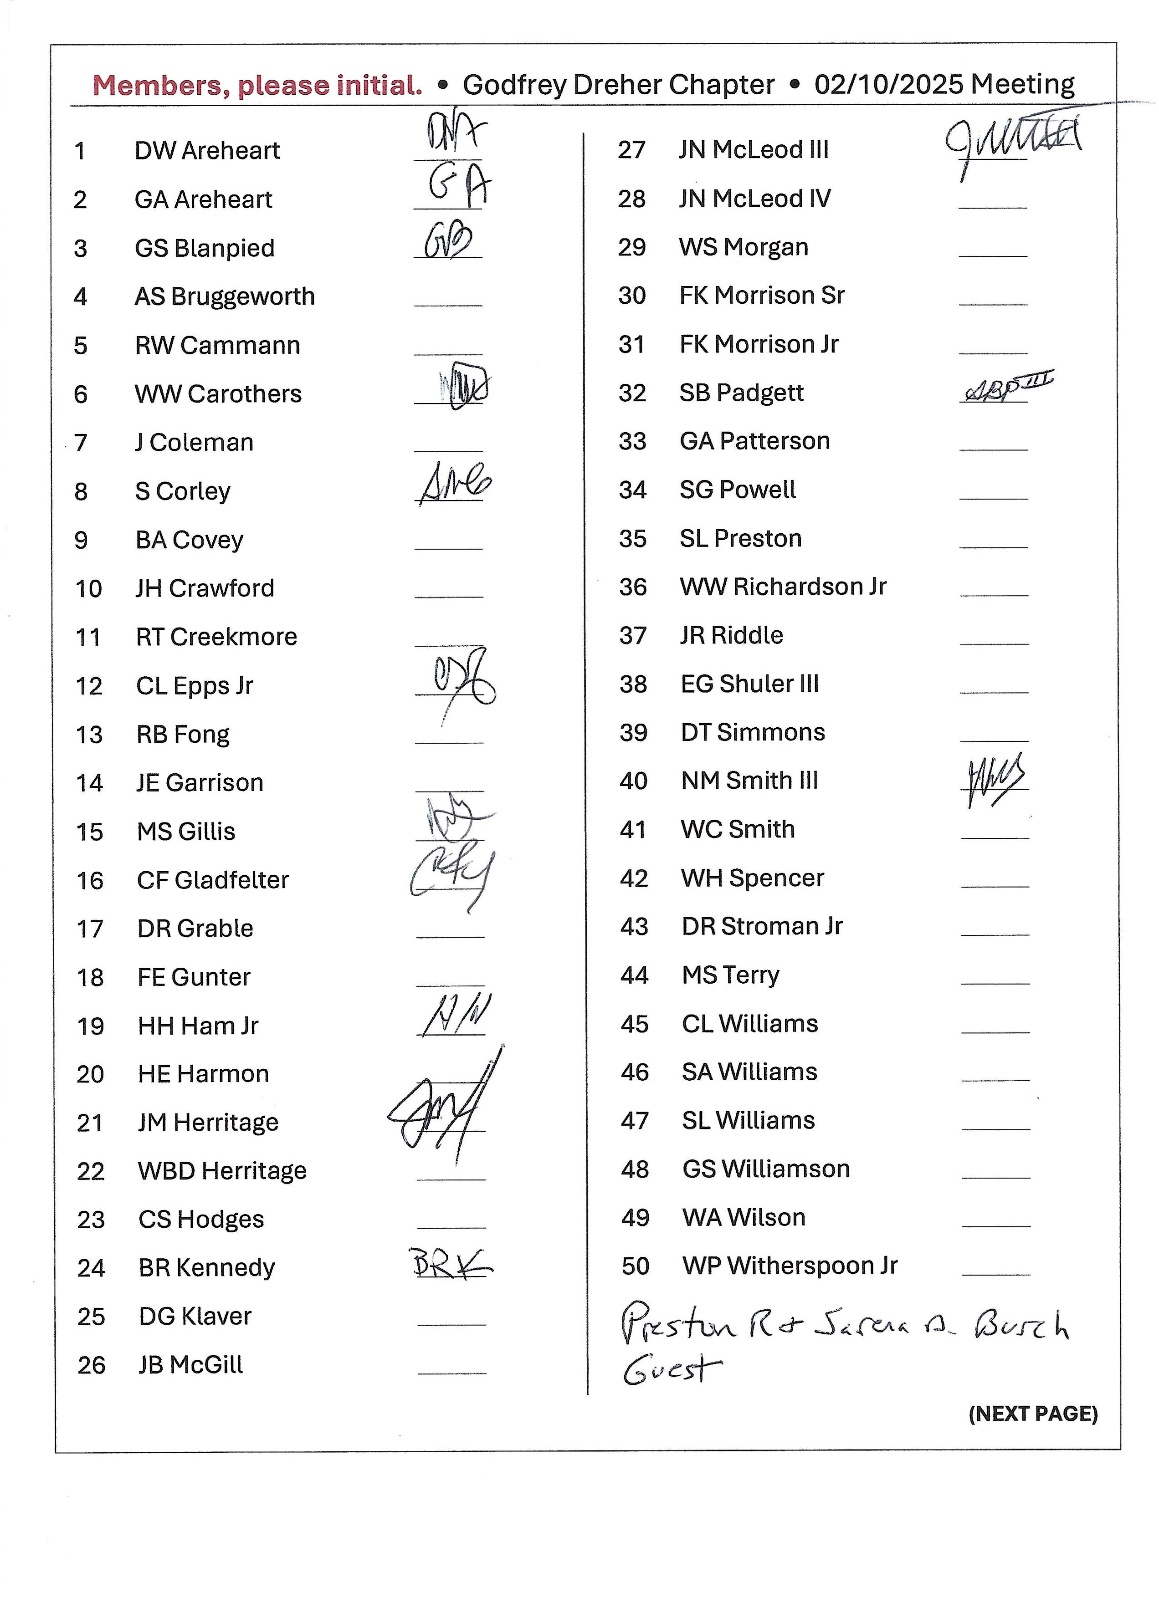 Members, please initial. • Godfrey Dreher Chapter • 02/10/2025 Meeting
1 DW Areheart DWA
2 GA Areheart GA
3 GS Blanpied GB
4 AS Bruggeworth
5 RW Cammann
6 WW Carothers
7 J Coleman
8 S Corley
9 BA Covey
10 JH Crawford
11 RT Creekmore
12 CL Epps Jr
13 RB Fong
14 JE Garrison
15 MS Gillis
16 CF Gladfelter
17 DR Grable
18 FE Gunter
19 HH Ham Jr
20 HE Harmon
21 JM Herritage JMH
22 WBD Herritage
23 CS Hodges
24 BR Kennedy BRK
25 DG Klaver
26 JB McGill
27 JN McLeod III
28 JN McLeod IV
29 WS Morgan
30 FK Morrison Sr
31 FK Morrison Jr
32 SB Padgett SBP III
33 GA Patterson
34 SG Powell
35 SL Preston
36 WW Richardson Jr
37 JR Riddle
38 EG Shuler III
39 DT Simmons
40 NM Smith III NMS
41 WC Smith
42 WH Spencer
43 DR Stroman Jr
44 MS Terry
45 CL Williams
46 SA Williams
47 SL Williams
48 GS Williamson
49 WA Wilson
50 WP Witherspoon Jr
Preston R + Sarena D. Busch
Guest
(NEXT PAGE)